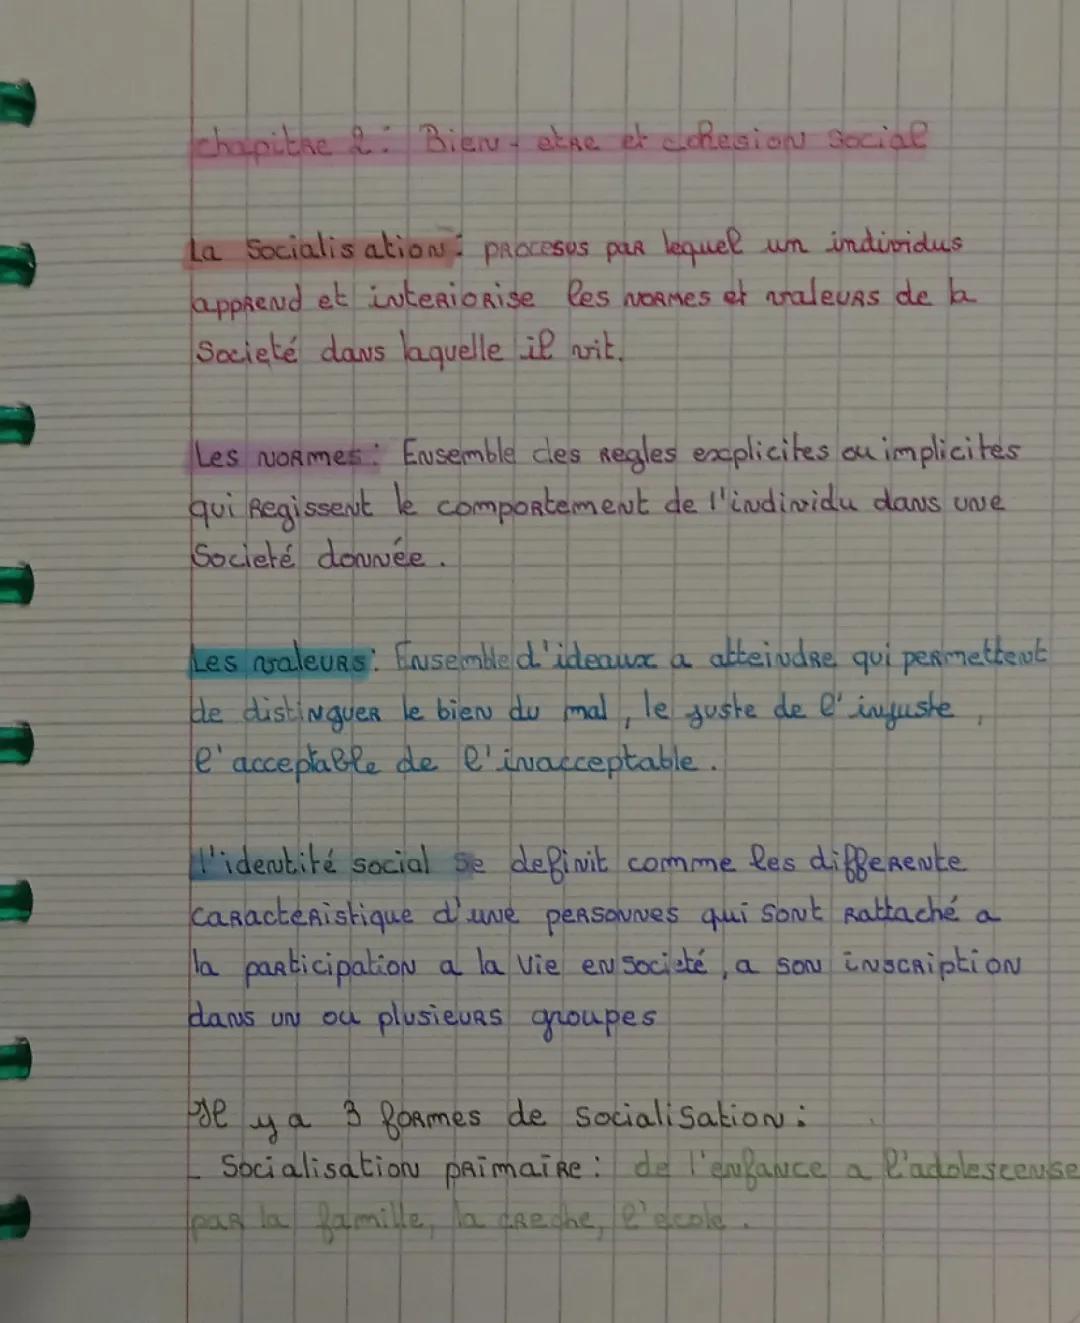 chapitre 2 : Bien-etre et cohesion social
La Socialisation : procesus par lequel un individus
apprend et interiorise les normes et valeurs de la
Societé dans laquelle il vit.
Les normes : Ensemble des regles explicites ou implicites
qui Regissent le comportement de l'individu dans une
Societé donnée.
Les valeurs : Ensemble d'ideaux a atteindre qui permettent
de distinguer le bien du mal, le juste de l'injuste,
l'acceptable de l'inacceptable.
l'identité social se definit comme les differente
caracteristique d'une personnes qui sont rattaché a
la participation a la vie en societé, a son inscription
dans un ou plusieurs groupes
Il y a 3 formes de socialisation :
- Socialisation primaire : de l'enfance a l'adolescense
par la famille, la creche, l'ecole.